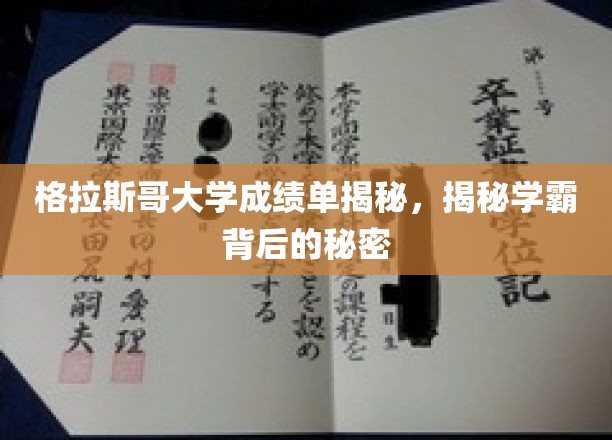 格拉斯哥大学成绩单揭秘，揭秘学霸
背后的秘密
第 号
卒業証 学位記
本学商学部 定の課程を
修めて本学 ことを認め
学士(商学)の する
平成
東京国際大学商 田村愛理
東京国際大 長田尻嗣夫